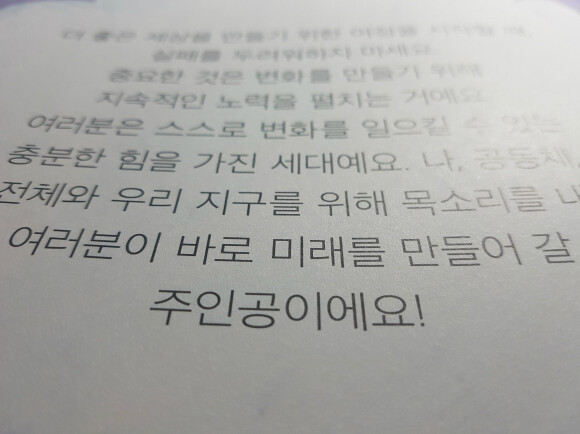 더 좋은 세상을 만들기 위한 여정을 시작할 때,
실패를 두려워하지 마세요.
중요한 것은 변화를 만들기 위해
지속적인 노력을 펼치는 거예요.
여러분은 스스로 변화를 일으킬 수 있는
충분한 힘을 가진 세대예요. 나, 공동체,
전체와 우리 지구를 위해 목소리를
여러분이 바로 미래를 만들어 갈
주인공이에요!